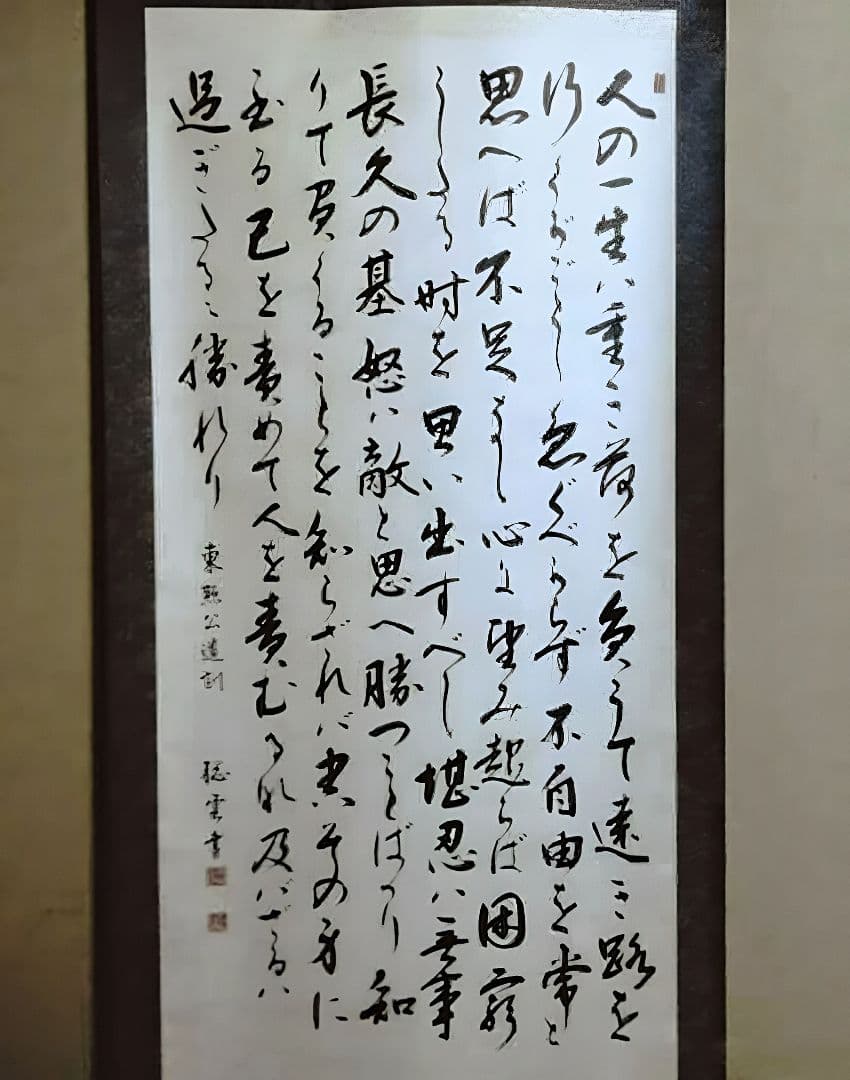 人の一生ハ重き荷を負うて遠き路を
行くがごとし急ぐべからず不自由を常と
思へば不足なし心に望み起らば困窮
したる時を思い出すべし堪忍ハ無事
長久の基怒ハ敵と思へ勝つことばかり知
りて負くることを知らざれバ害その身に
至る己を責めて人を責むるな及バざるハ
過ぎたるに勝れり
東照公遺訓
聡雲書